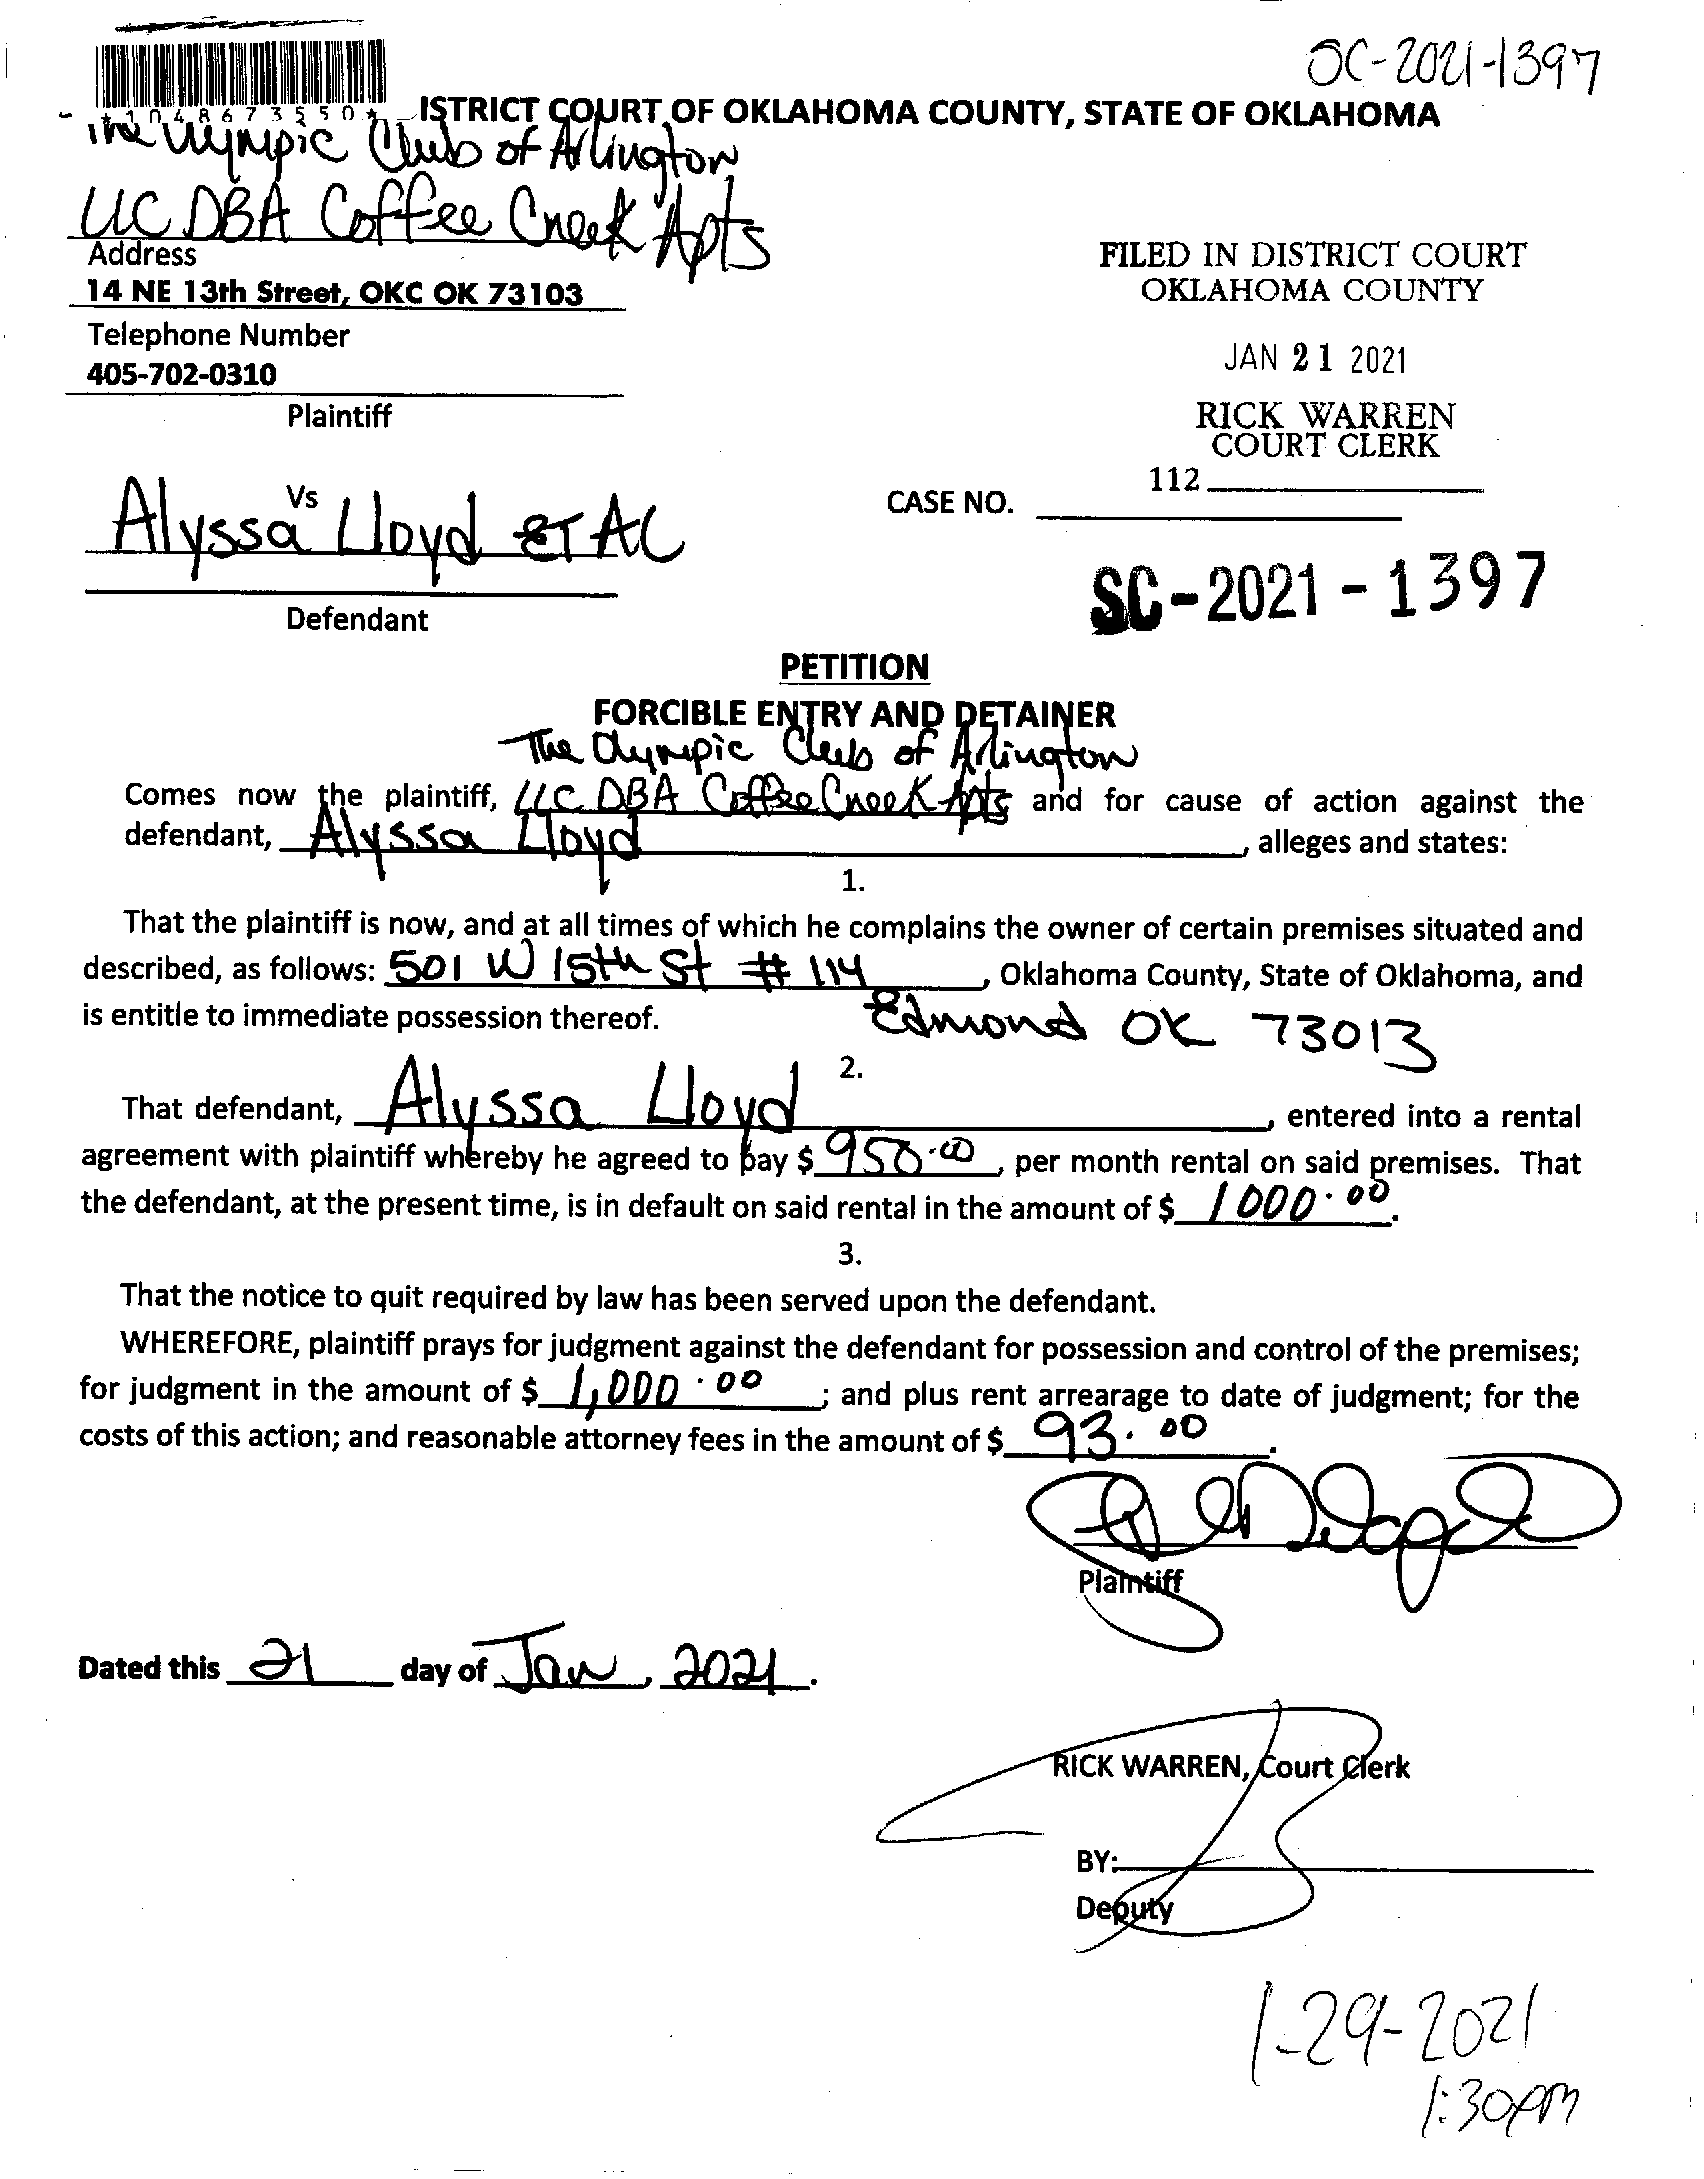 SC-2021-1397
*1048673550*
ISTRICT COURT OF OKLAHOMA COUNTY, STATE OF OKLAHOMA
The Olympic Club of Arlington
LLC DBA Coffee Creek Apts
Address
14 NE 13th Street, OKC OK 73103
Telephone Number
405-702-0310
Plaintiff
FILED IN DISTRICT COURT
OKLAHOMA COUNTY
JAN 21 2021
RICK WARREN
COURT CLERK
112
Vs
Alyssa Lloyd ET AL
Defendant
CASE NO.
SC-2021-1397
PETITION
FORCIBLE ENTRY AND DETAINER
The Olympic Club of Arlington
Comes now the plaintiff, LLC DBA Coffee Creek Apts and for cause of action against the
defendant, Alyssa Lloyd, alleges and states:
1.
That the plaintiff is now, and at all times of which he complains the owner of certain premises situated and
described, as follows: 501 W 15th St # 114, Oklahoma County, State of Oklahoma, and
is entitle to immediate possession thereof. Edmond OK 73013
2.
That defendant, Alyssa Lloyd, entered into a rental
agreement with plaintiff whereby he agreed to pay $ 950.00, per month rental on said premises. That
the defendant, at the present time, is in default on said rental in the amount of $ 1000.00.
3.
That the notice to quit required by law has been served upon the defendant.
WHEREFORE, plaintiff prays for judgment against the defendant for possession and control of the premises;
for judgment in the amount of $ 1,000.00; and plus rent arrearage to date of judgment; for the
costs of this action; and reasonable attorney fees in the amount of $ 93.00.
Plaintiff
Dated this 21 day of Jan, 2021.
RICK WARREN, Court Clerk
BY:
Deputy
1-29-2021
1:30PM